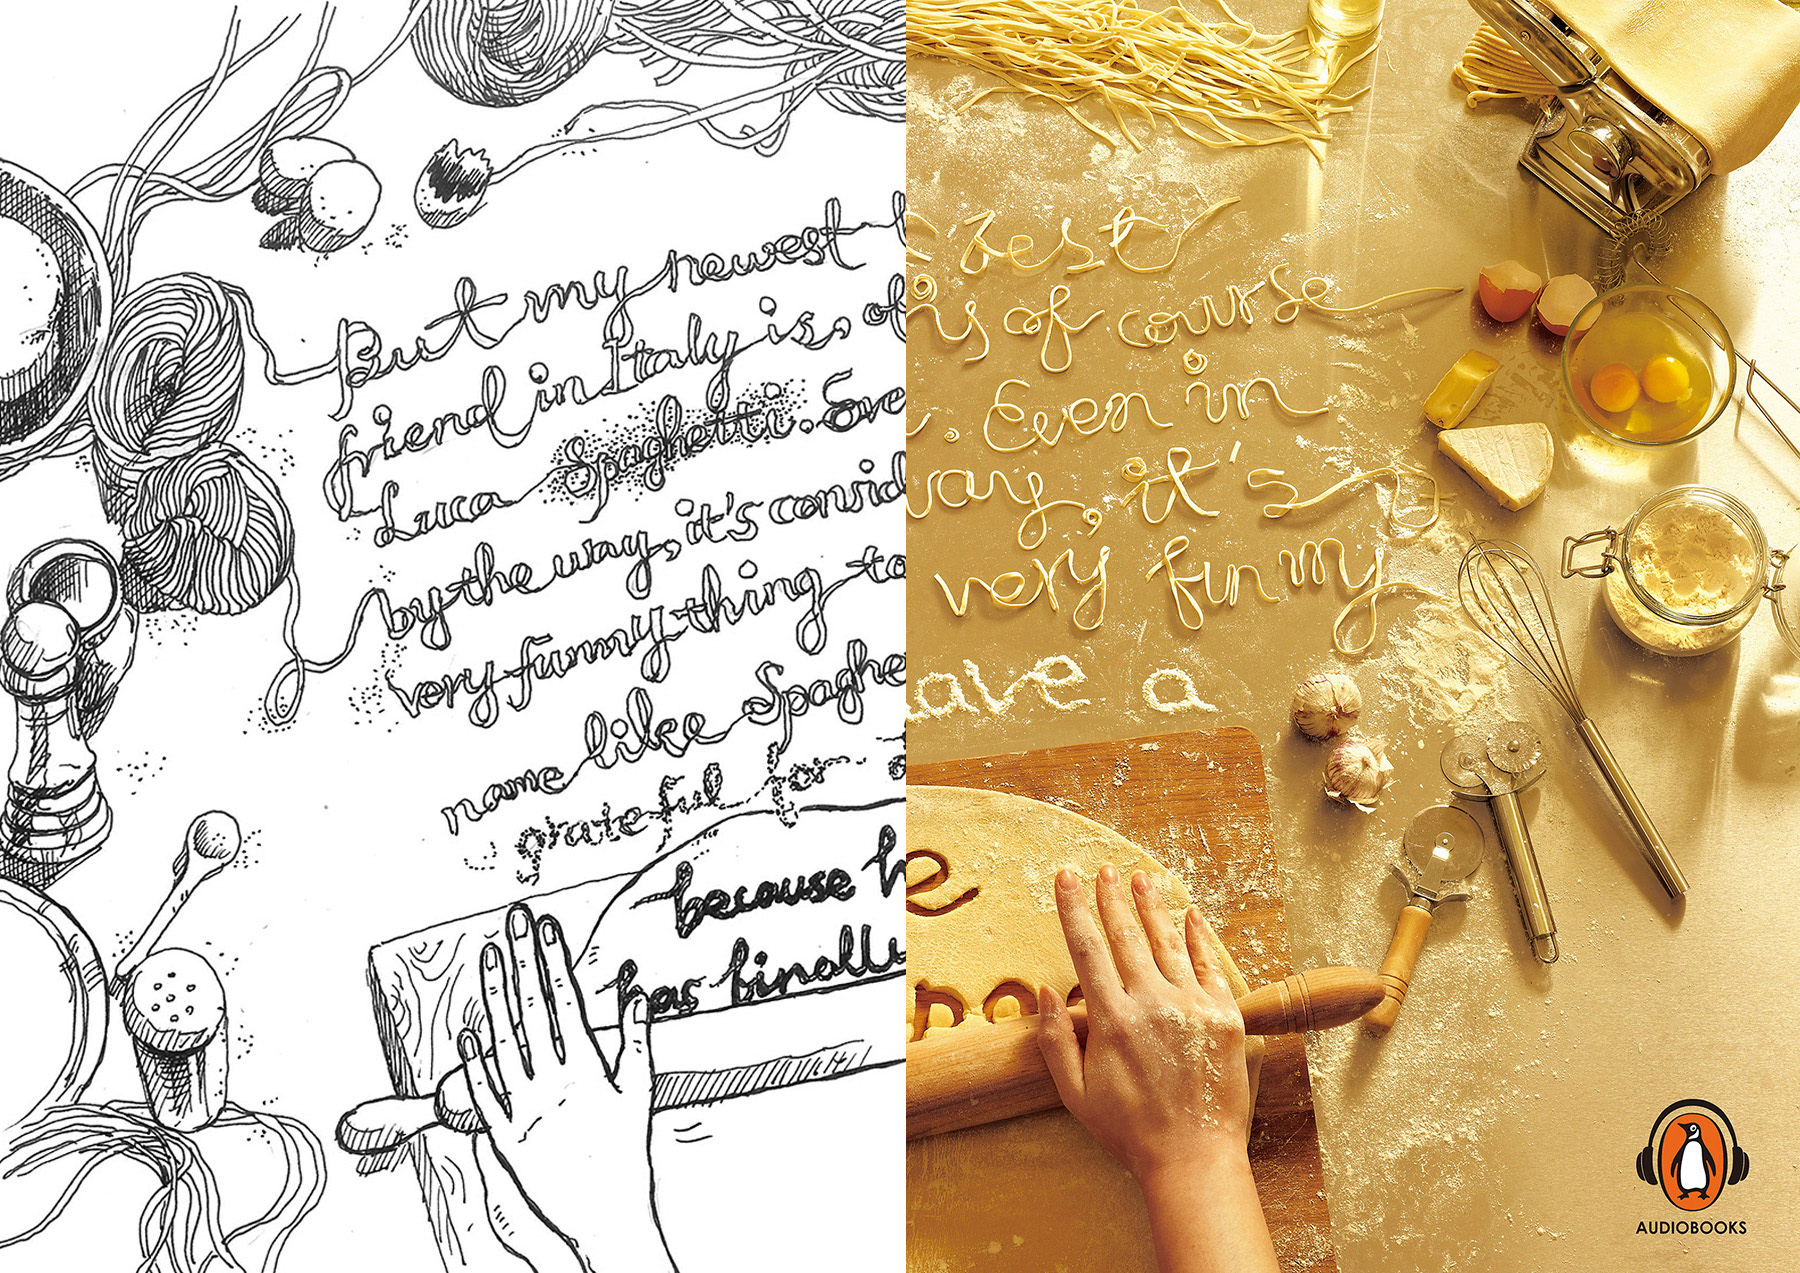 But my newest
friend in Italy is, of
Luca Spaghetti. Eve
by the way, it's consid
very funny thing to
name like Spaghe
grateful for
because h
has finally
best
of course
. Even in
way, it's
very funny
ave a
e
AUDIOBOOKS